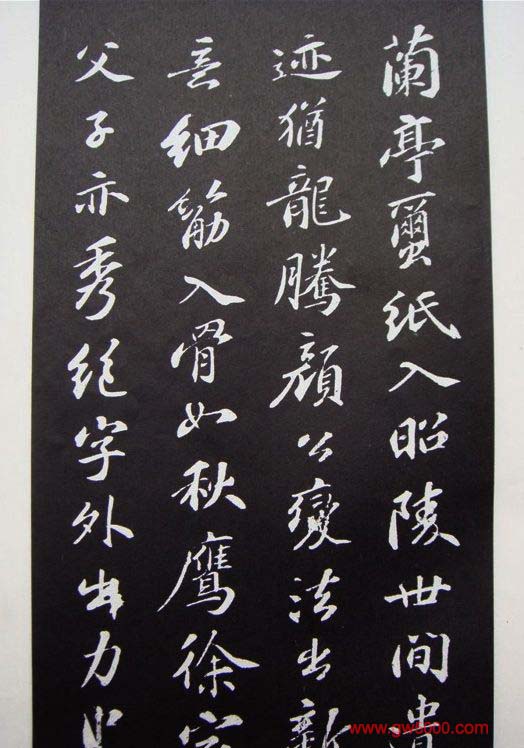 蘭亭蠒紙入昭陵世間遺
迹猶龍騰顏公變法出新
意細筋入骨如秋鷹徐家
父子亦秀絕字外出力中
www.gw5000.com